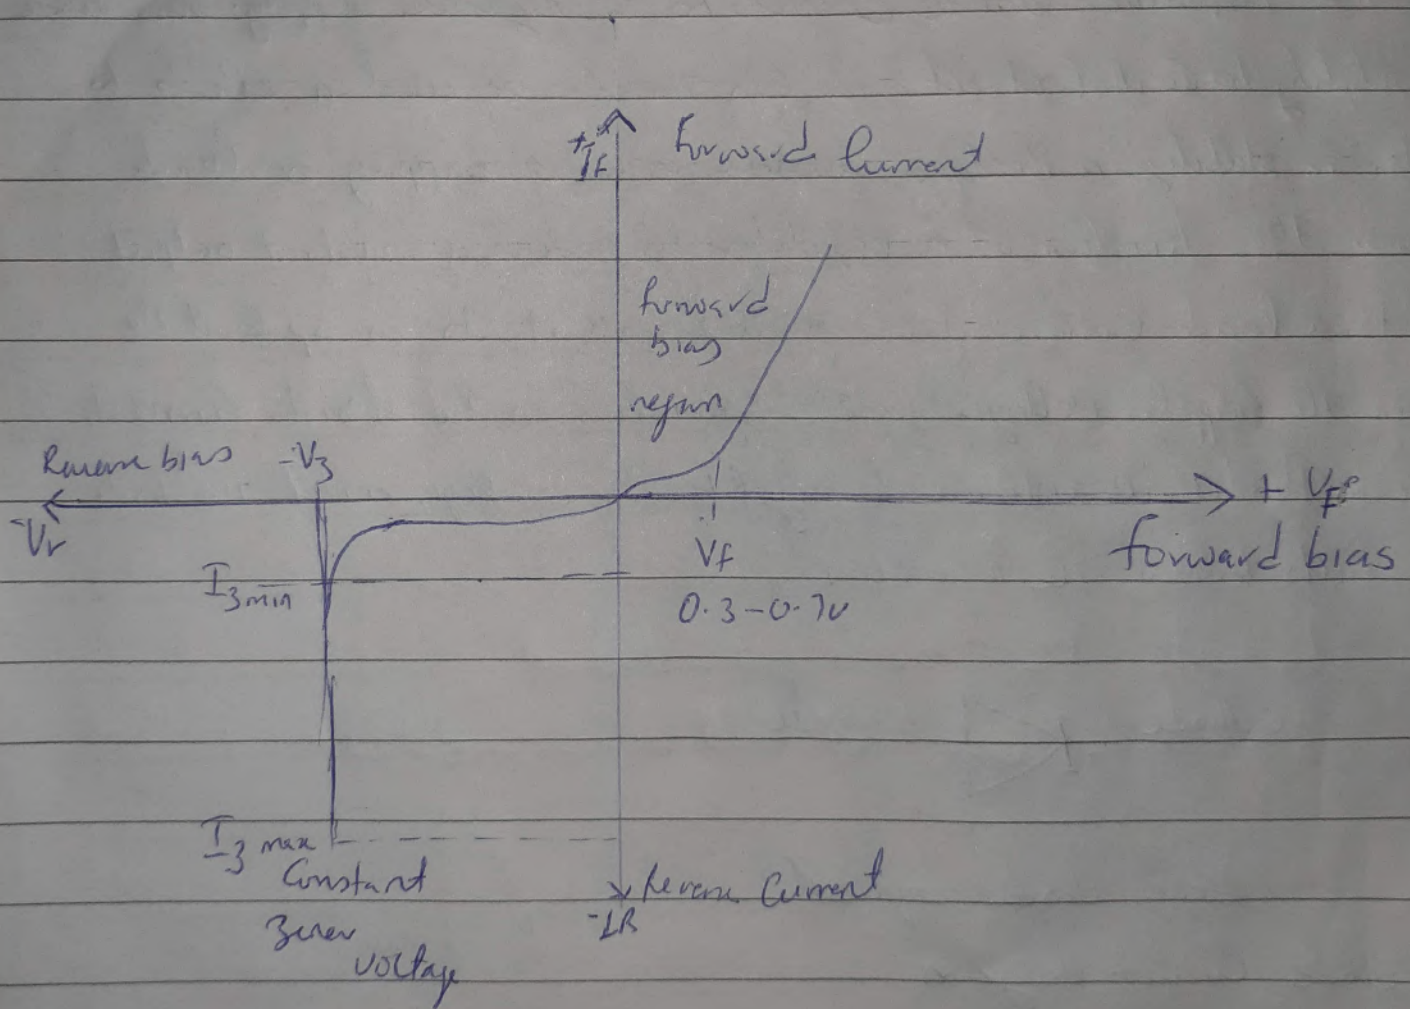 +IF
Forward Current
forward
bias
region
Reverse bias
-Vz
-Vr
+ VF
forward bias
Iz min
Vf
0.3-0.7v
Iz max
Constant
Zener
voltage
Reverse Current
-IR